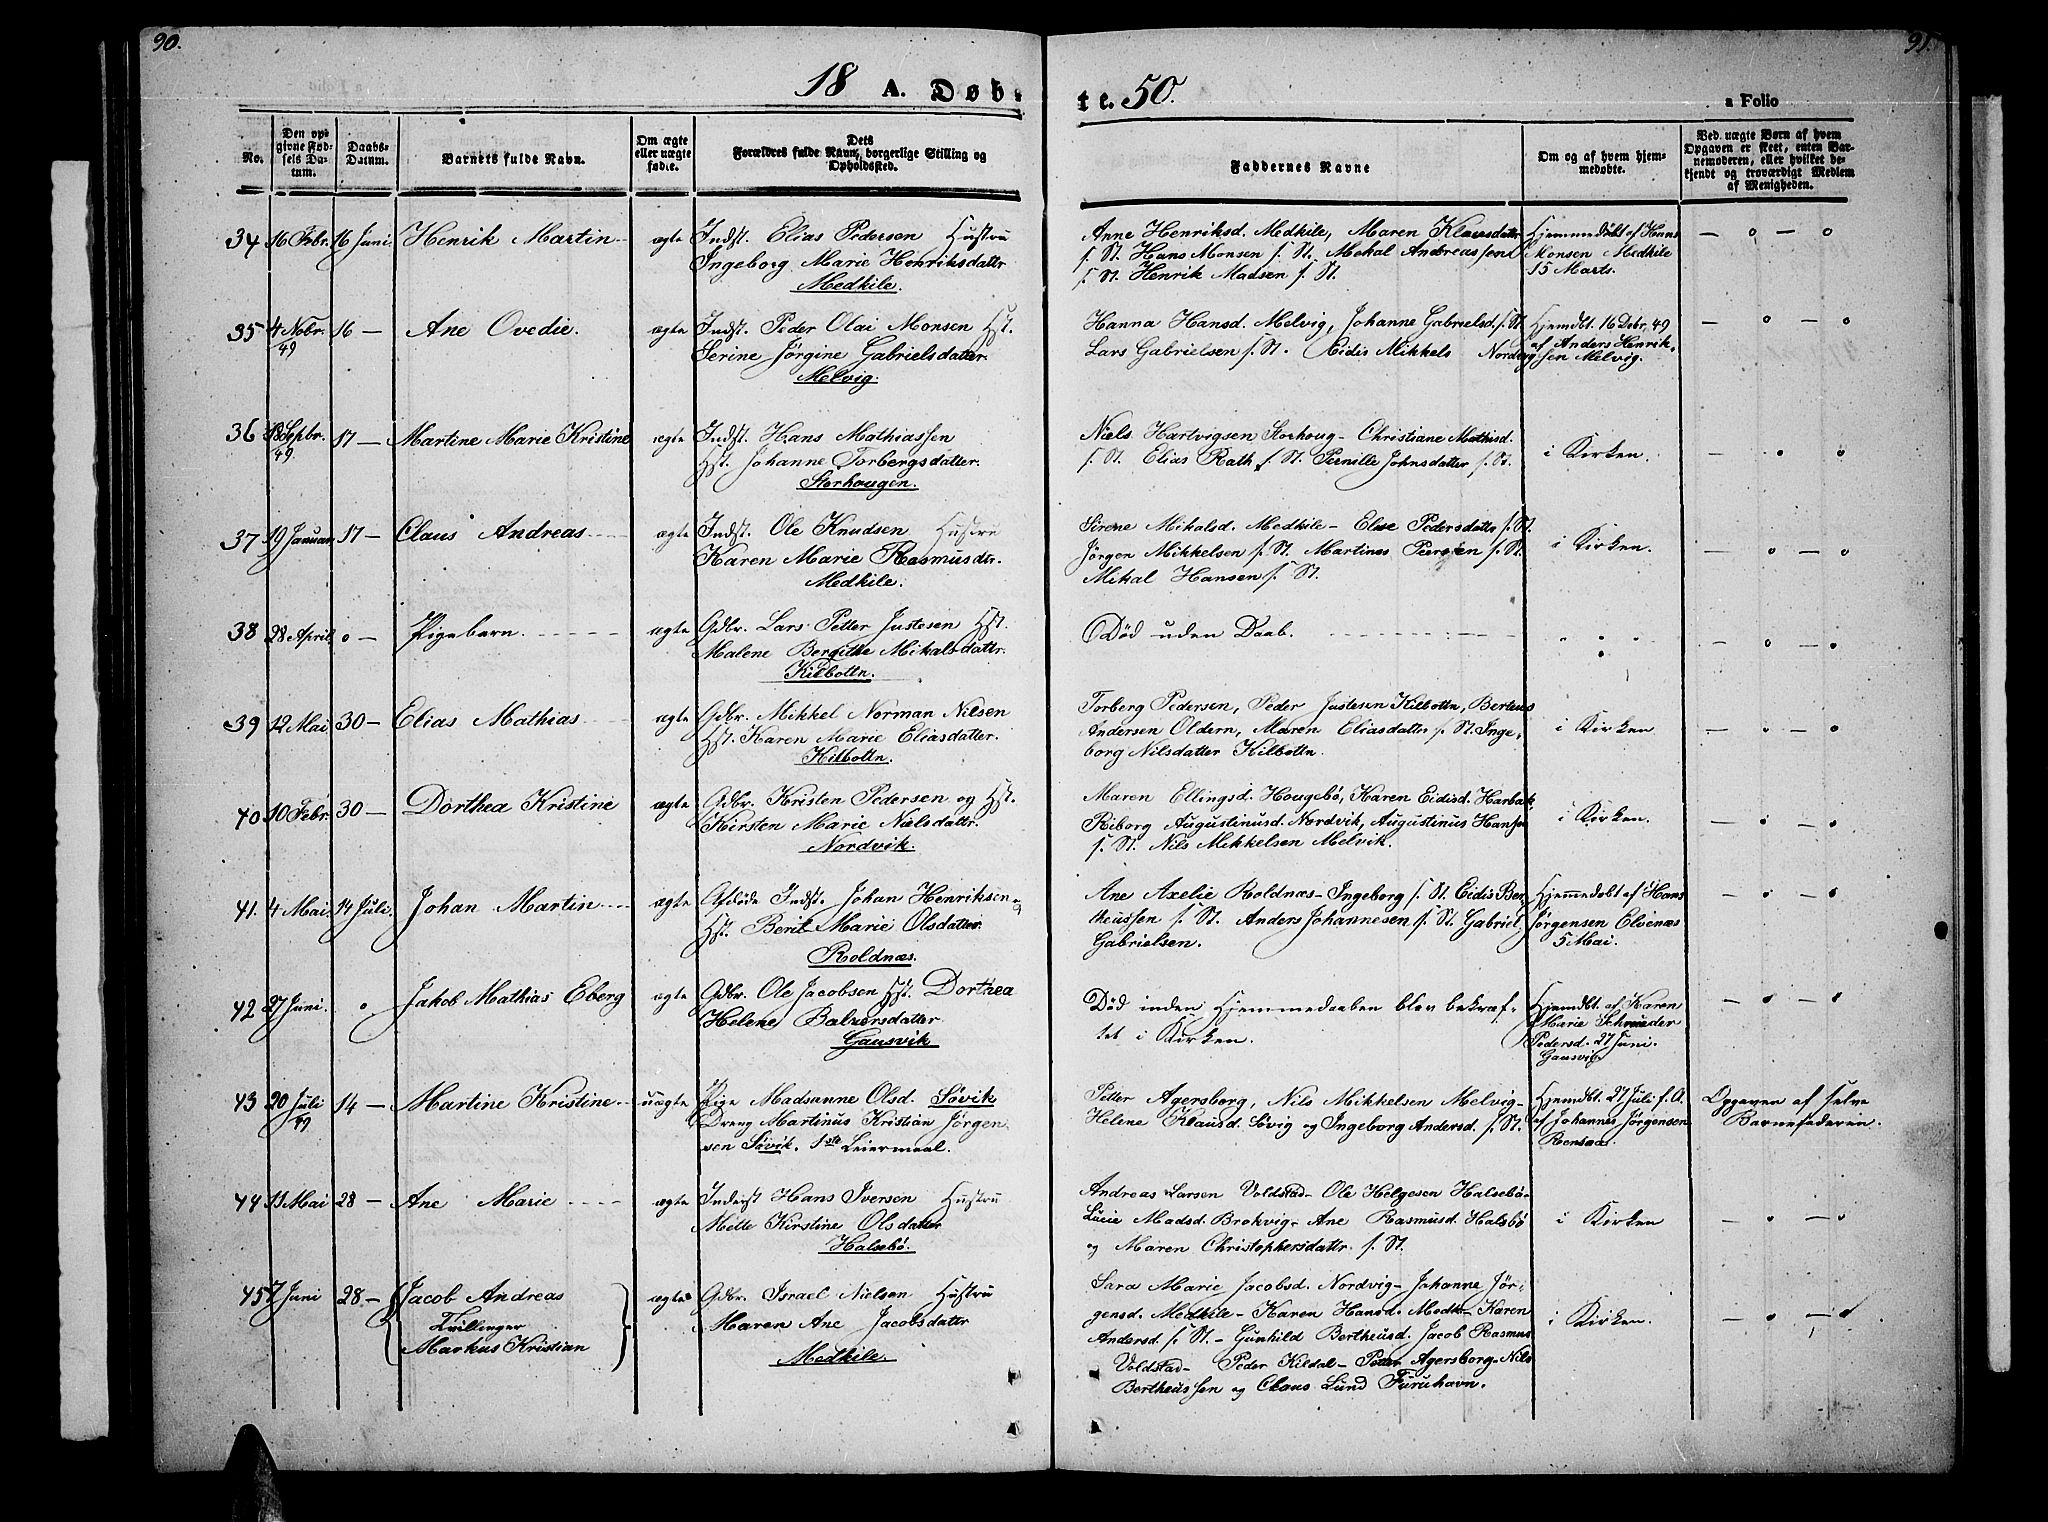 90.
91.
18 A. Døb-
te. 50.
a Folio
No.
Den op-
givne Fød-
sels Da-
tum.
Daabs-
Datum.
Barnets fulde Navn.
Om ægte
eller uægte
fødte.
Dets
Forældres fulde Navn, borgerlige Stilling og
Opholdssted.
Faddernes Navne
Om og af hvem hjem-
medøbte.
Ved uægte Børn af hvem
Opgaven er skeet, enten Bar-
nemoderen, eller hvilket be-
kjendt og troværdigt Medlem
af Menigheden.
34 16 Febr. 16 Juni. Henrik Martin ægte Indst. Elias Pedersen Hustru
Ingeborg Marie Henriksdattr
Medkile.
Anne Henriksd. Medkile, Maren Klausdattr
f. St. Hans Monsen f. St. Mikal Andreassen
f. St. Henrik Madsen f. St.
Hjemmedöbt af Hans
Monsen Medkile
15 Marts.
— o — o
35 4 Nobr. 49 16 — Ane Ovedie. ægte Indst. Peder Olai Monsen Hst.
Serine Jörgine Gabrielsdatter
Melvig.
Hanna Hansd. Melvig, Johanne Gabrielsd. f. St.
Lars Gabrielsen f. St. Eidis Mikkels Nordvig
Hjemdbt. 16 Dcbr. 49
af Anders Henrik-
sen Melvig.
— o — o
36 18 Sepbr. 49 17 — Martine Marie Kristine ægte Indst. Hans Mathiassen
Hst. Johanne Torbergsdatter.
Storhougen.
Niels Hartvigsen Storhoug - Christiane Mathisd.
f. St. Elias Rath f. St. Pernille Johnsdatter f. St.
i Kirken.
— o — o
37 19 Januar 17 — Claus Andreas ægte Indst. Ole Knudsen Hustru
Karen Marie Rasmusdtr.
Medkile.
Sirene Mikalsd. Medkile - Elise Pedersdattr f. St.
Jörgen Mikkelsen f. St. Martines Peersen f. St.
Mikal Hansen f. St.
i Kirken.
— o — o
38 28 April o — Pigebarn. ægte Gdbr. Lars Petter Justesen Hst.
Malene Bergithe Mikalsdattr.
Kilbottn.
Död uden Daab.
— o — o
39 12 Mai 30 — Elias Mathias ægte Gdbr. Mikkel Norman Nilsen
Hst. Karen Marie Eliasdatter.
Kilbottn.
Torberg Pedersen, Peder Justesen Kilbottn, Berteus
Andersen Oldern, Maren Eliasdattr f. St. Inge-
borg Nilsdatter Kilbottn.
i Kirken
— o — o
40 10 Febr. 30 — Dorthea Kristine ægte Gdbr. Kristen Pedersen og Hst.
Kirsten Marie Nielsdattr.
Nordvik.
Maren Ellingsd. Hougebö, Karen Eidisd. Harbak,
Riborg Augustinusd. Nordvik, Augustinus Hansen
f. St. Nils Mikkelsen Melvik.
i Kirken.
— o — o
41. 4 Mai. 14 Juli. Johan Martin ægte Afdöde Indst. Johan Henriksen og
Hst. Berit Marie Olsdatter.
Roldnæs.
Ane Axelie Roldnæs - Ingeborg f. St. Eidis Ber
theussen f. St. Anders Johannesen f. St. Gabriel
Gabrielsen.
Hjemmedöbt af Hans
Jörgensen Elvenæs
5 Mai.
— o — o
42 27 Juni. o Jakob Mathias Eberg ægte Gdbr. Ole Jacobsen Hst. Dorthea
Helene Balzersdatter
Gausvik
Död inden Hjemmedaaben blev bekræf-
tet i Kirken.
Hjemdbt. af Karen
Marie Schrøder
Pedersd. 27 Juni.
Gausvig
— o — o
43 20 Juli 49 14 — Martine Kristine uægte Pige Madsanne Olsd. Sövik
Dreng Martinus Kristian Jörgen
sen Sövik. 1ste Leiermaal.
Petter Agersborg, Nils Mikkelsen Melvig -
Helene Klausd. Sövig og Ingeborg Andersd. f. St.
Hjemdbt. 27 Juli f. A.
af Johannes Jörgensen
Rensaa.
Opgaven af selve
Barnefaderen.
44 13 Mai 28 — Ane Marie ægte Inderst Hans Iversen Hustru
Mette Kirstine Olsdatter
Halsebö.
Andreas Larsen Voldstad - Ole Helgesen Halsebö -
Lucie Madsd. Brokvig - Ane Rasmusd. Halsbö
og Maren Christophersdattr. f. St.
i Kirken
— o — o
45 7 Juni 28 — Jacob Andreas
Tvillinger
Markus Kristian
ægte Gdbr. Israel Nielsen Hustru
Maren Ane Jacobsdattr
Medkile
Sara Marie Jacobsd. Nordvig - Johanne Jör-
gensd. Medkile - Karen Hansd. Medk - Karen
Andersd f. St. - Gunhild Bertheusd. Jacob Rasmus
Voldstad - Peder Kildal - Petter Agersborg - Nils
Bertheussen og Claus Lund Furuhavn.
i Kirken.
— o — o